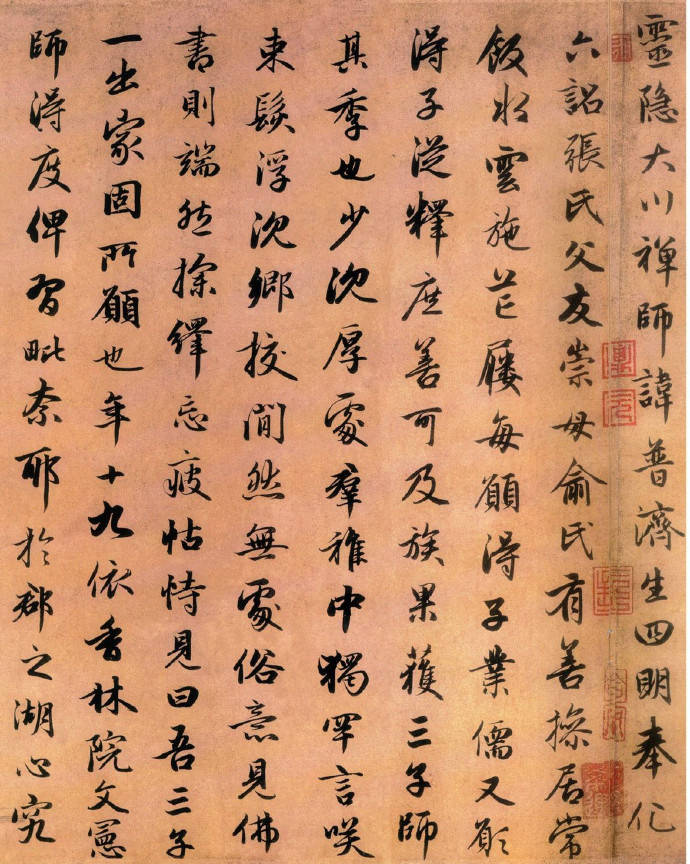 靈隐大川禪師諱普濟生四明奉化
六詔張氏父友崇母俞氏有善操居常
飯水雲施芒屨每願得子業儒又願
得子從釋庶善可及族果獲三子師
其季也少沈厚處羣稚中獨罕言咲
束髮浮沈鄉校間然無處俗意見佛
書則端然探繹忘疲怙恃見曰吾三子
一出家固所願也年十九依香林院文憲
師得度俾習毗奈耶於郡之湖心究